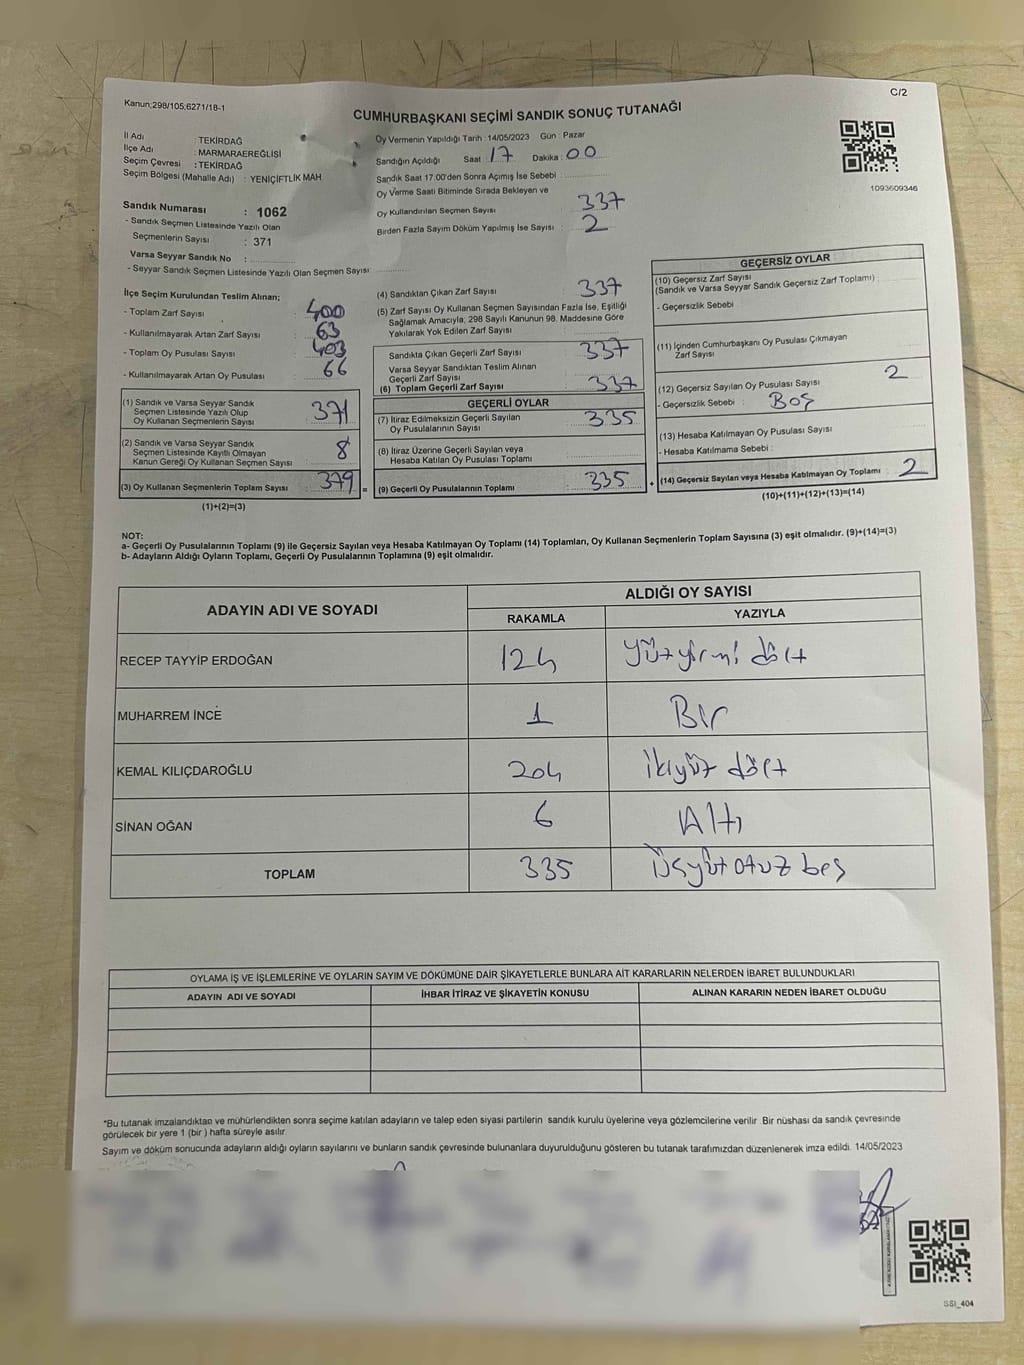 Kanun;298/105;6271/18-1
C/2
CUMHURBAŞKANI SEÇİMİ SANDIK SONUÇ TUTANAĞI
İl Adı : TEKİRDAĞ
İlçe Adı : MARMARAEREĞLİSİ
Seçim Çevresi : TEKİRDAĞ
Seçim Bölgesi (Mahalle Adı) : YENİÇİFTLİK MAH.
Sandık Numarası : 1062
- Sandık Seçmen Listesinde Yazılı Olan
Seçmenlerin Sayısı : 371
Varsa Seyyar Sandık No :
- Seyyar Sandık Seçmen Listesinde Yazılı Olan Seçmen Sayısı:
Oy Vermenin Yapıldığı Tarih :14/05/2023 Gün : Pazar
Sandığın Açıldığı Saat : 17 Dakika : 00
Sandık Saat 17:00'den Sonra Açımış İse Sebebi :
Oy Verme Saati Bitiminde Sırada Bekleyen ve
Oy Kullandırılan Seçmen Sayısı : 337
Birden Fazla Sayım Döküm Yapılmış İse Sayısı : 2
1093609346
İlçe Seçim Kurulundan Teslim Alınan;
- Toplam Zarf Sayısı : 400
- Kullanılmayarak Artan Zarf Sayısı : 63
- Toplam Oy Pusulası Sayısı : 403
- Kullanılmayarak Artan Oy Pusulası : 66
(1) Sandık ve Varsa Seyyar Sandık
Seçmen Listesinde Yazılı Olup
Oy Kullanan Seçmenlerin Sayısı : 371
(2) Sandık ve Varsa Seyyar Sandık
Seçmen Listesinde Kayıtlı Olmayan
Kanun Gereği Oy Kullanan Seçmen Sayısı : 8
(3) Oy Kullanan Seçmenlerin Toplam Sayısı : 379
(1)+(2)=(3)
=
(4) Sandıktan Çıkan Zarf Sayısı : 337
(5) Zarf Sayısı Oy Kullanan Seçmen Sayısından Fazla İse, Eşitliği
Sağlamak Amacıyla, 298 Sayılı Kanunun 98. Maddesine Göre
Yakılarak Yok Edilen Zarf Sayısı :
Sandıkta Çıkan Geçerli Zarf Sayısı : 337
Varsa Seyyar Sandıktan Teslim Alınan
Geçerli Zarf Sayısı :
(6) Toplam Geçerli Zarf Sayısı : 337
GEÇERLİ OYLAR
(7) İtiraz Edilmeksizin Geçerli Sayılan
Oy Pusulalarının Sayısı : 335
(8) İtiraz Üzerine Geçerli Sayılan veya
Hesaba Katılan Oy Pusulası Toplamı :
(9) Geçerli Oy Pusulalarının Toplamı : 335
+
GEÇERSİZ OYLAR
(10) Geçersiz Zarf Sayısı
(Sandık ve Varsa Seyyar Sandık Geçersiz Zarf Toplamı) :
- Geçersizlik Sebebi :
(11) İçinden Cumhurbaşkanı Oy Pusulası Çıkmayan
Zarf Sayısı :
(12) Geçersiz Sayılan Oy Pusulası Sayısı : 2
- Geçersizlik Sebebi : Boş
(13) Hesaba Katılmayan Oy Pusulası Sayısı :
- Hesaba Katılmama Sebebi :
(14) Geçersiz Sayılan veya Hesaba Katılmayan Oy Toplamı : 2
(10)+(11)+(12)+(13)=(14)
NOT:
a- Geçerli Oy Pusulalarının Toplamı (9) ile Geçersiz Sayılan veya Hesaba Katılmayan Oy Toplamı (14) Toplamları, Oy Kullanan Seçmenlerin Toplam Sayısına (3) eşit olmalıdır. (9)+(14)=(3)
b- Adayların Aldığı Oyların Toplamı, Geçerli Oy Pusulalarının Toplamına (9) eşit olmalıdır.
ADAYIN ADI VE SOYADI
ALDIĞI OY SAYISI
RAKAMLA YAZIYLA
RECEP TAYYİP ERDOĞAN 124 Yüzyirmi dört
MUHARREM İNCE 1 Bir
KEMAL KILIÇDAROĞLU 204 İkiyüz dört
SİNAN OĞAN 6 Altı
TOPLAM 335 Üçyüz otuz beş
OYLAMA İŞ VE İŞLEMLERİNE VE OYLARIN SAYIM VE DÖKÜMÜNE DAİR ŞİKAYETLERLE BUNLARA AİT KARARLARIN NELERDEN İBARET BULUNDUKLARI
ADAYIN ADI VE SOYADI İHBAR İTİRAZ VE ŞİKAYETİN KONUSU ALINAN KARARIN NEDEN İBARET OLDUĞU
*Bu tutanak imzalandıktan ve mühürlendikten sonra seçime katılan adayların ve talep eden siyasi partilerin sandık kurulu üyelerine veya gözlemcilerine verilir. Bir nüshası da sandık çevresinde
görülecek bir yere 1 (bir) hafta süreyle asılır.
Sayım ve döküm sonucunda adayların aldığı oyların sayılarını ve bunların sandık çevresinde bulunanlara duyurulduğunu gösteren bu tutanak tarafımızdan düzenlenerek imza edildi. 14/05/2023
SSI_404